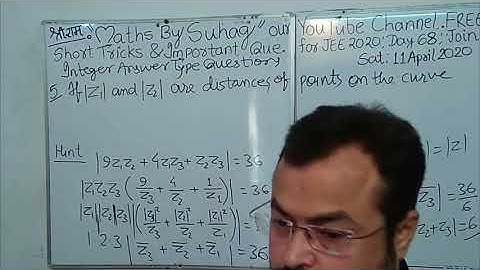 श्रीराम: "Maths By Suhag" our YouTube Channel. FREE
Short Tricks & Important Que. for JEE 2020: Day 68: Join
Integer Answer Type Questions Sat: 11 April 2020
5. If |Z₁| and |Z₂| are distances of points on the curve
Hint |9Z₁Z₂ + 4Z₁Z₃ + Z₂Z₃| = 36
= |Z|
|Z₁Z₂Z₃(9/Z₃ + 4/Z₂ + 1/Z₁)| = 36
= 36/6
|Z₁||Z₂||Z₃||(|Z₃|²/Z₃ + |Z₂|²/Z₂ + |Z₁|²/Z₁)| = 36
1·2·3 |Z̅₃ + Z̅₂ + Z̅₁| = 36
Z₂+Z₃| = 6